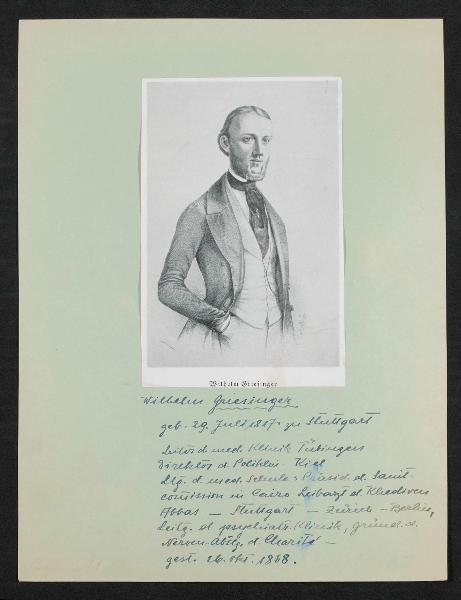 Wilhelm Griesinger
Wilhelm Griesinger
geb. 29. Juli 1817 zu Stuttgart
Leitg d. med. Klinik Tübingen
Direktor d. Poliklin. Kiel
Ltg. d. med. Schule & Präsid. d. Sanit-
comission in Cairo Leibarzt d. Khediven
Abbas — Stuttgart — Zürich — Berlin,
Leitg. d. psychiatr. Klinik, gründ. d.
Nerven-Abtlg. d. Charité —
gest. 26. Okt. 1868.